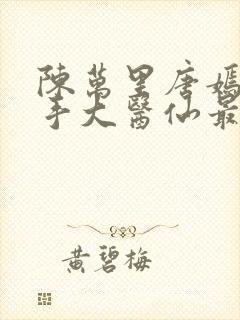 陳萬里唐嫣
手大醫仙最
黃碧梅